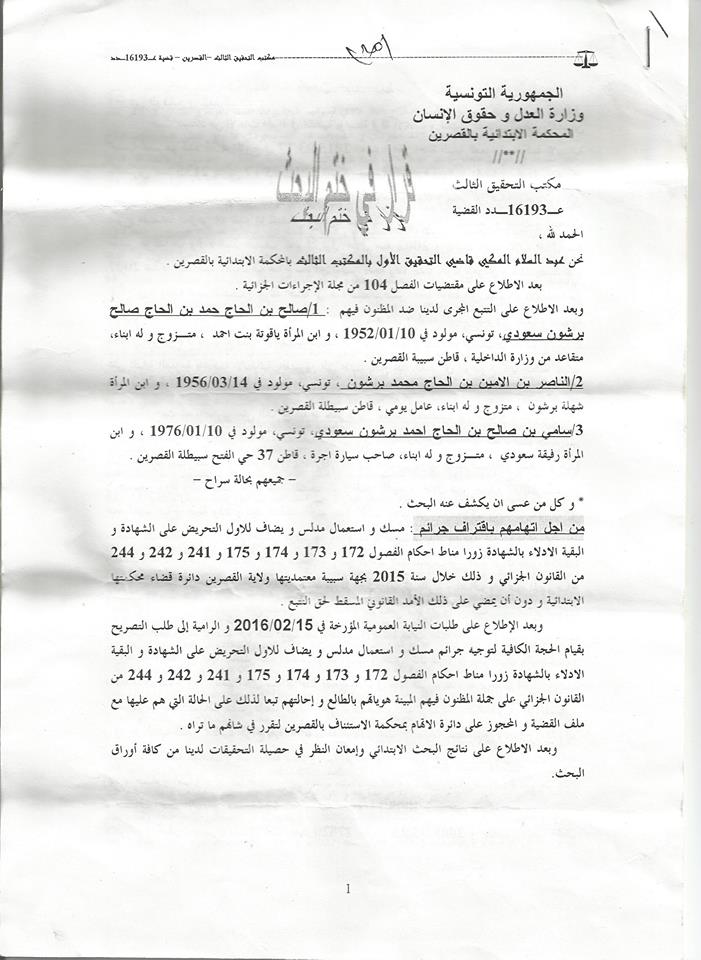 مكتب التحقيق الثالث –القصرين – قضية عـ16193ـدد
الجمهورية التونسية
وزارة العدل و حقوق الإنسان
المحكمة الابتدائية بالقصرين
//**//
قرار في ختم البحث
مكتب التحقيق الثالث
عــ16193ــدد القضية
الحمد لله ،
نحن عبد السلام المكي قاضي التحقيق الأول بالمكتب الثالث بالمحكمة الابتدائية بالقصرين .
بعد الاطلاع على مقتضيات الفصل 104 من مجلة الإجراءات الجزائية .
وبعد الاطلاع على التتبع المجرى لدينا ضد المظنون فيهم : 1/صالح بن الحاج حمد بن الحاج صالح
برشون سعودي، تونسي، مولود في 1952/01/10 ، و ابن المرأة ياقوتة بنت احمد ، متـزوج و له ابناء،
متقاعد من وزارة الداخلية ، قاطن سبيبة القصرين .
2/الناصر بن الامين بن الحاج محمد برشون ، تونسي، مولود في 1956/03/14 ، و ابن المرأة
شهلة برشون ، متزوج و له ابناء، عامل يومي ، قاطن سبيطلة القصرين .
3/سامي بن صالح بن الحاج احمد برشون سعودي، تونسي، مولود في 1976/01/10 ، و ابن
المرأة رفيقة سعودي ، متـــزوج و له ابناء، صاحب سيارة اجرة ، قاطن 37 حي الفتح سبيطلة القصرين .
– جميعهم بحالة سراح –
* و كل من عسى ان يكشف عنه البحث .
من اجل اتهامهم باقتراف جرائم : مسك و استعمال مدلس و يضاف للاول التحريض على الشهادة و
البقية الادلاء بالشهادة زورا مناط احكام الفصول 172 و 173 و 174 و 175 و 241 و 242 و 244
من القانون الجزائي و ذلك خلال سنة 2015 بجهة سبيبة معتمديتها ولاية القصرين دائرة قضاء محكمتها
الابتدائية و دون أن يمضي على ذلك الأمد القانوني المسقط لحق التتبع .
وبعد الإطلاع على طلبات النيابة العمومية المؤرخة في 2016/02/15 و الرامية إلى طلب التصريح
بقيام الحجة الكافية لتوجيه جرائم مسك و استعمال مدلس و يضاف للاول التحريض على الشهادة و البقية
الادلاء بالشهادة زورا مناط احكام الفصول 172 و 173 و 174 و 175 و 241 و 242 و 244 من
القانون الجزائي على جملة المظنون فيهم المبينة هوياتهم بالطالع و إحالتهم تبعا لذلك على الحالة التي هم عليها مع
ملف القضية و المحجوز على دائرة الاتهام بمحكمة الاستئناف بالقصرين لتقرر في شانهم ما تراه .
وبعد الاطلاع على نتائج البحث الابتدائي وإمعان النظر في حصيلة التحقيقات لدينا من كافة أوراق
البحث.
1